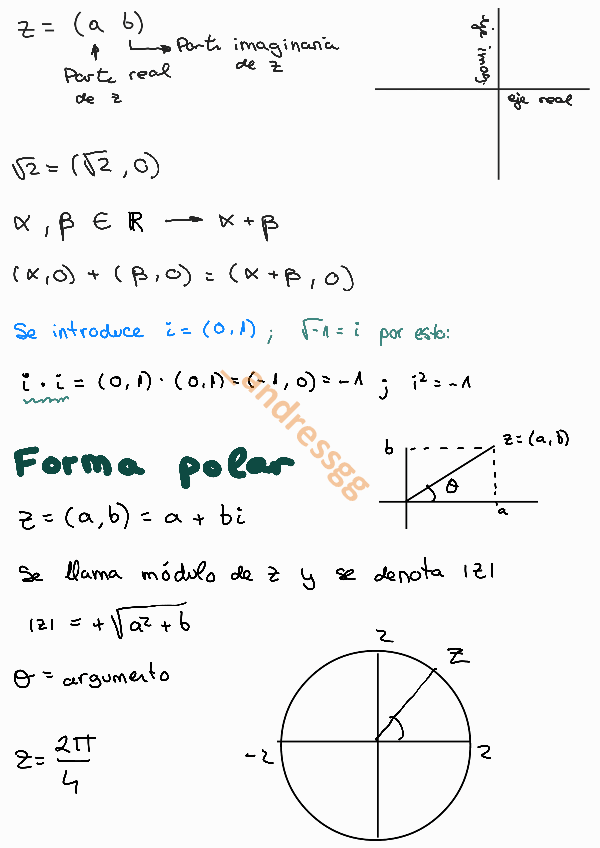 z = (a b)
Parte imaginaria
de z
Parte real
de z
eje imag.
eje real
√2 = (√2, 0)
α, β ∈ ℝ → α + β
(α, 0) + (β, 0) = (α + β, 0)
Se introduce i = (0, 1); √-1 = i por esto:
i · i = (0, 1) · (0, 1) = (-1, 0) = -1 ; i² = -1
_andressgg
Forma polar
b
z = (a, b)
θ
a
z = (a, b) = a + bi
Se llama módulo de z y se denota |z|
|z| = +√a² + b
θ = argumento
2
z
-2
2
z = 2π/4